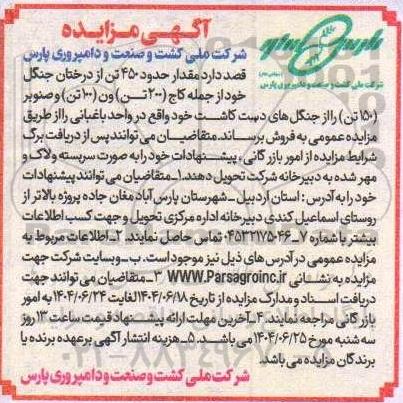 آگهی مزایده
شرکت ملی کشت و صنعت و دامپروری پارس
پارس
(سهامی عام)
شرکت ملی کشت و صنعت و دامپروری پارس
قصد دارد مقدار حدود ۴۵۰ تن از درختان جنگل
خود از جمله کاج (۲۰۰ تن) ون (۱۰۰ تن) و صنوبر
(۱۵۰ تن) را از جنگل های دست کاشت خود واقع در واحد باغبانی را از طریق
مزایده عمومی به فروش برساند. متقاضیان می توانند پس از دریافت برگ
شرایط مزایده از امور بازرگانی، پیشنهادات خود را به صورت سربسته ولاک و
مهر شده به دبیرخانه شرکت تحویل دهند. ۱_متقاضیان می توانند پیشنهادات
خود را به آدرس : استان اردبیل _شهرستان پارس آباد مغان جاده پروژه بالاتر از
روستای اسماعیل کندی دبیرخانه اداره مرکزی تحویل و جهت کسب اطلاعات
بیشتر با شماره ۷_۰۴۵۳۲۱۷۵۰۴۶ تماس حاصل نمایند. ۲_اطلاعات مربوط به
مزایده عمومی در آدرس های ذیل نیز موجود است. ب_وبسایت شرکت جهت
مزایده به نشانی WWW.Parsagroinc.ir ۳_متقاضیان می توانند جهت
دریافت اسناد و مدارک مزایده از تاریخ ۱۴۰۴/۰۶/۱۸ لغایت ۱۴۰۴/۰۶/۲۴ به امور
بازرگانی مراجعه نمایند. ۴_آخرین مهلت ارائه پیشنهاد قیمت ساعت ۱۳ روز
سه شنبه مورخ ۱۴۰۴/۰۶/۲۵ می باشد. ۵_هزینه انتشار آگهی برعهده برنده یا
برندگان مزایده می باشد.
شرکت ملی کشت و صنعت و دامپروری پارس